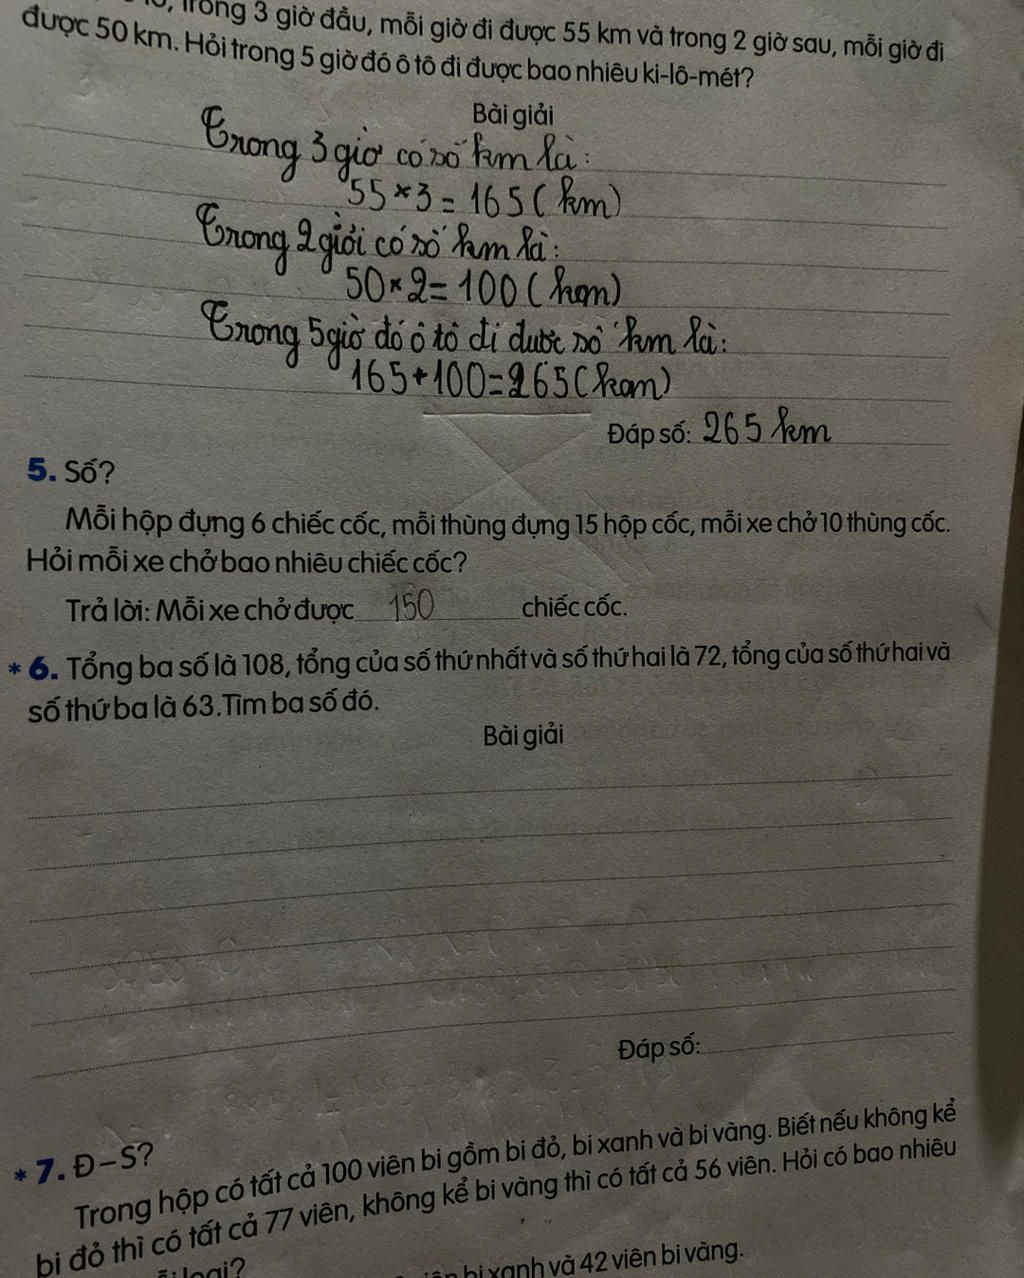 trong 3 giờ đầu, mỗi giờ đi được 55 km và trong 2 giờ sau, mỗi giờ đi
được 50 km. Hỏi trong 5 giờ đó ô tô đi được bao nhiêu ki-lô-mét?
Bài giải
Trong 3 giờ có số km là:
55 × 3 = 165 (km)
Trong 2 giời có số km là:
50 × 2 = 100 (km)
Trong 5 giờ đó ô tô đi được số km là:
165 + 100 = 265 (km)
Đáp số: 265 km
5. Số?
Mỗi hộp đựng 6 chiếc cốc, mỗi thùng đựng 15 hộp cốc, mỗi xe chở 10 thùng cốc.
Hỏi mỗi xe chở bao nhiêu chiếc cốc?
Trả lời: Mỗi xe chở được 150 chiếc cốc.
* 6. Tổng ba số là 108, tổng của số thứ nhất và số thứ hai là 72, tổng của số thứ hai và
số thứ ba là 63.Tìm ba số đó.
Bài giải
Đáp số:
* 7. Đ – S?
Trong hộp có tất cả 100 viên bi gồm bi đỏ, bi xanh và bi vàng. Biết nếu không kể
bi đỏ thì có tất cả 77 viên, không kể bi vàng thì có tất cả 56 viên. Hỏi có bao nhiêu
loại?
bi xanh và 42 viên bi vàng.